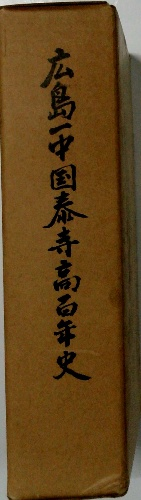 広島一中国泰寺高百年史